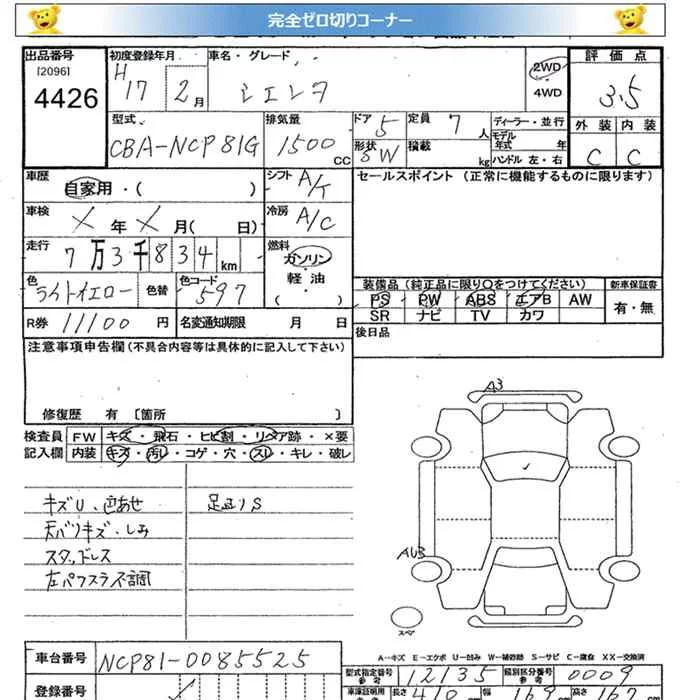 完全ゼロ切りコーナー
出品番号 初度登録年月 車名・グレード 評価点
[2096] H17 2月 シエンタ 2WD 3.5
4426 4WD
型式 排気量 ドア 5 定員 7人 ディーラー・並行 外装 内装
CBA-NCP81G 1500CC 形状 SW 積載 kg モデル年式 年 C C
ハンドル 左・右
車歴 シフト A/T セールスポイント(正常に機能するものに限ります)
自家用・( )
車検 冷房 A/C
X年X月( 日)
走行 燃料
7万3千834km ガソリン
軽油
色 色替 色コード ( ) 装備品(純正品に限り○をつけてください) 新車保証書
ライトイエロー 597 PS PW ABS エアB AW 有・無
R券 11100円 名変通知期限 月 日 SR ナビ TV カワ
注意事項申告欄(不具合内容等は具体的に記入して下さい) 後日品
修復歴 有 [箇所 ]
A3
検査員 FW キズ・飛石・ヒビ割・リペア跡・×要
記入欄 内装 キズ・汚レ・コゲ・穴・スレ・キレ・破レ
キズU、色あせ 足廻りS
天バリキズ・しみ
スタッドレス
左パワスラ不調
AU3
スペア
A-キズ E-エクボ U-凹み W-補修跡 S-サビ C-腐食 XX-交換済
車台番号 NCP81-0085525
型式指定番号 参考 12135 類別区分番号 参考 0009
登録番号 長さ 410 幅 169 高さ 167